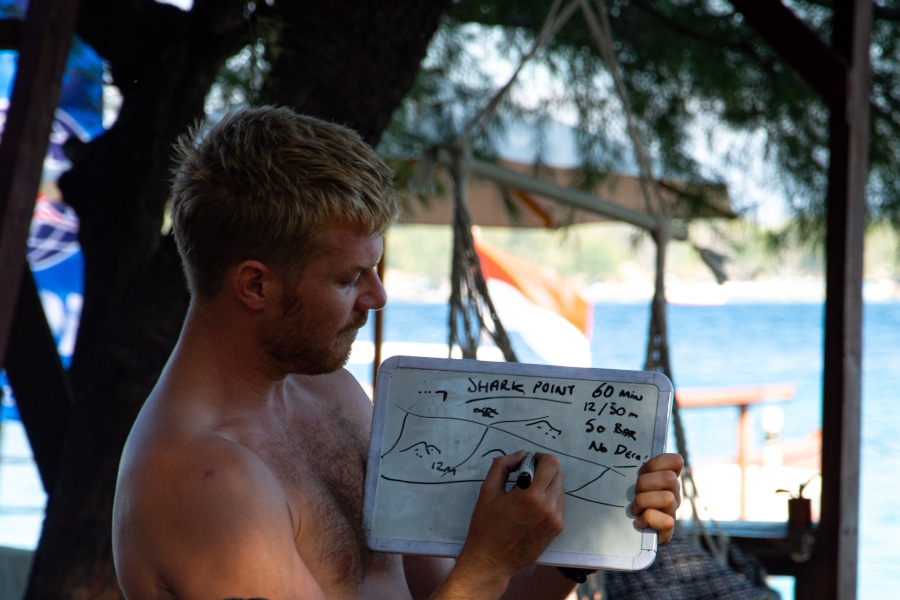 SHARK POINT
60 MIN
12/30m
50 BAR
No Deco
12M